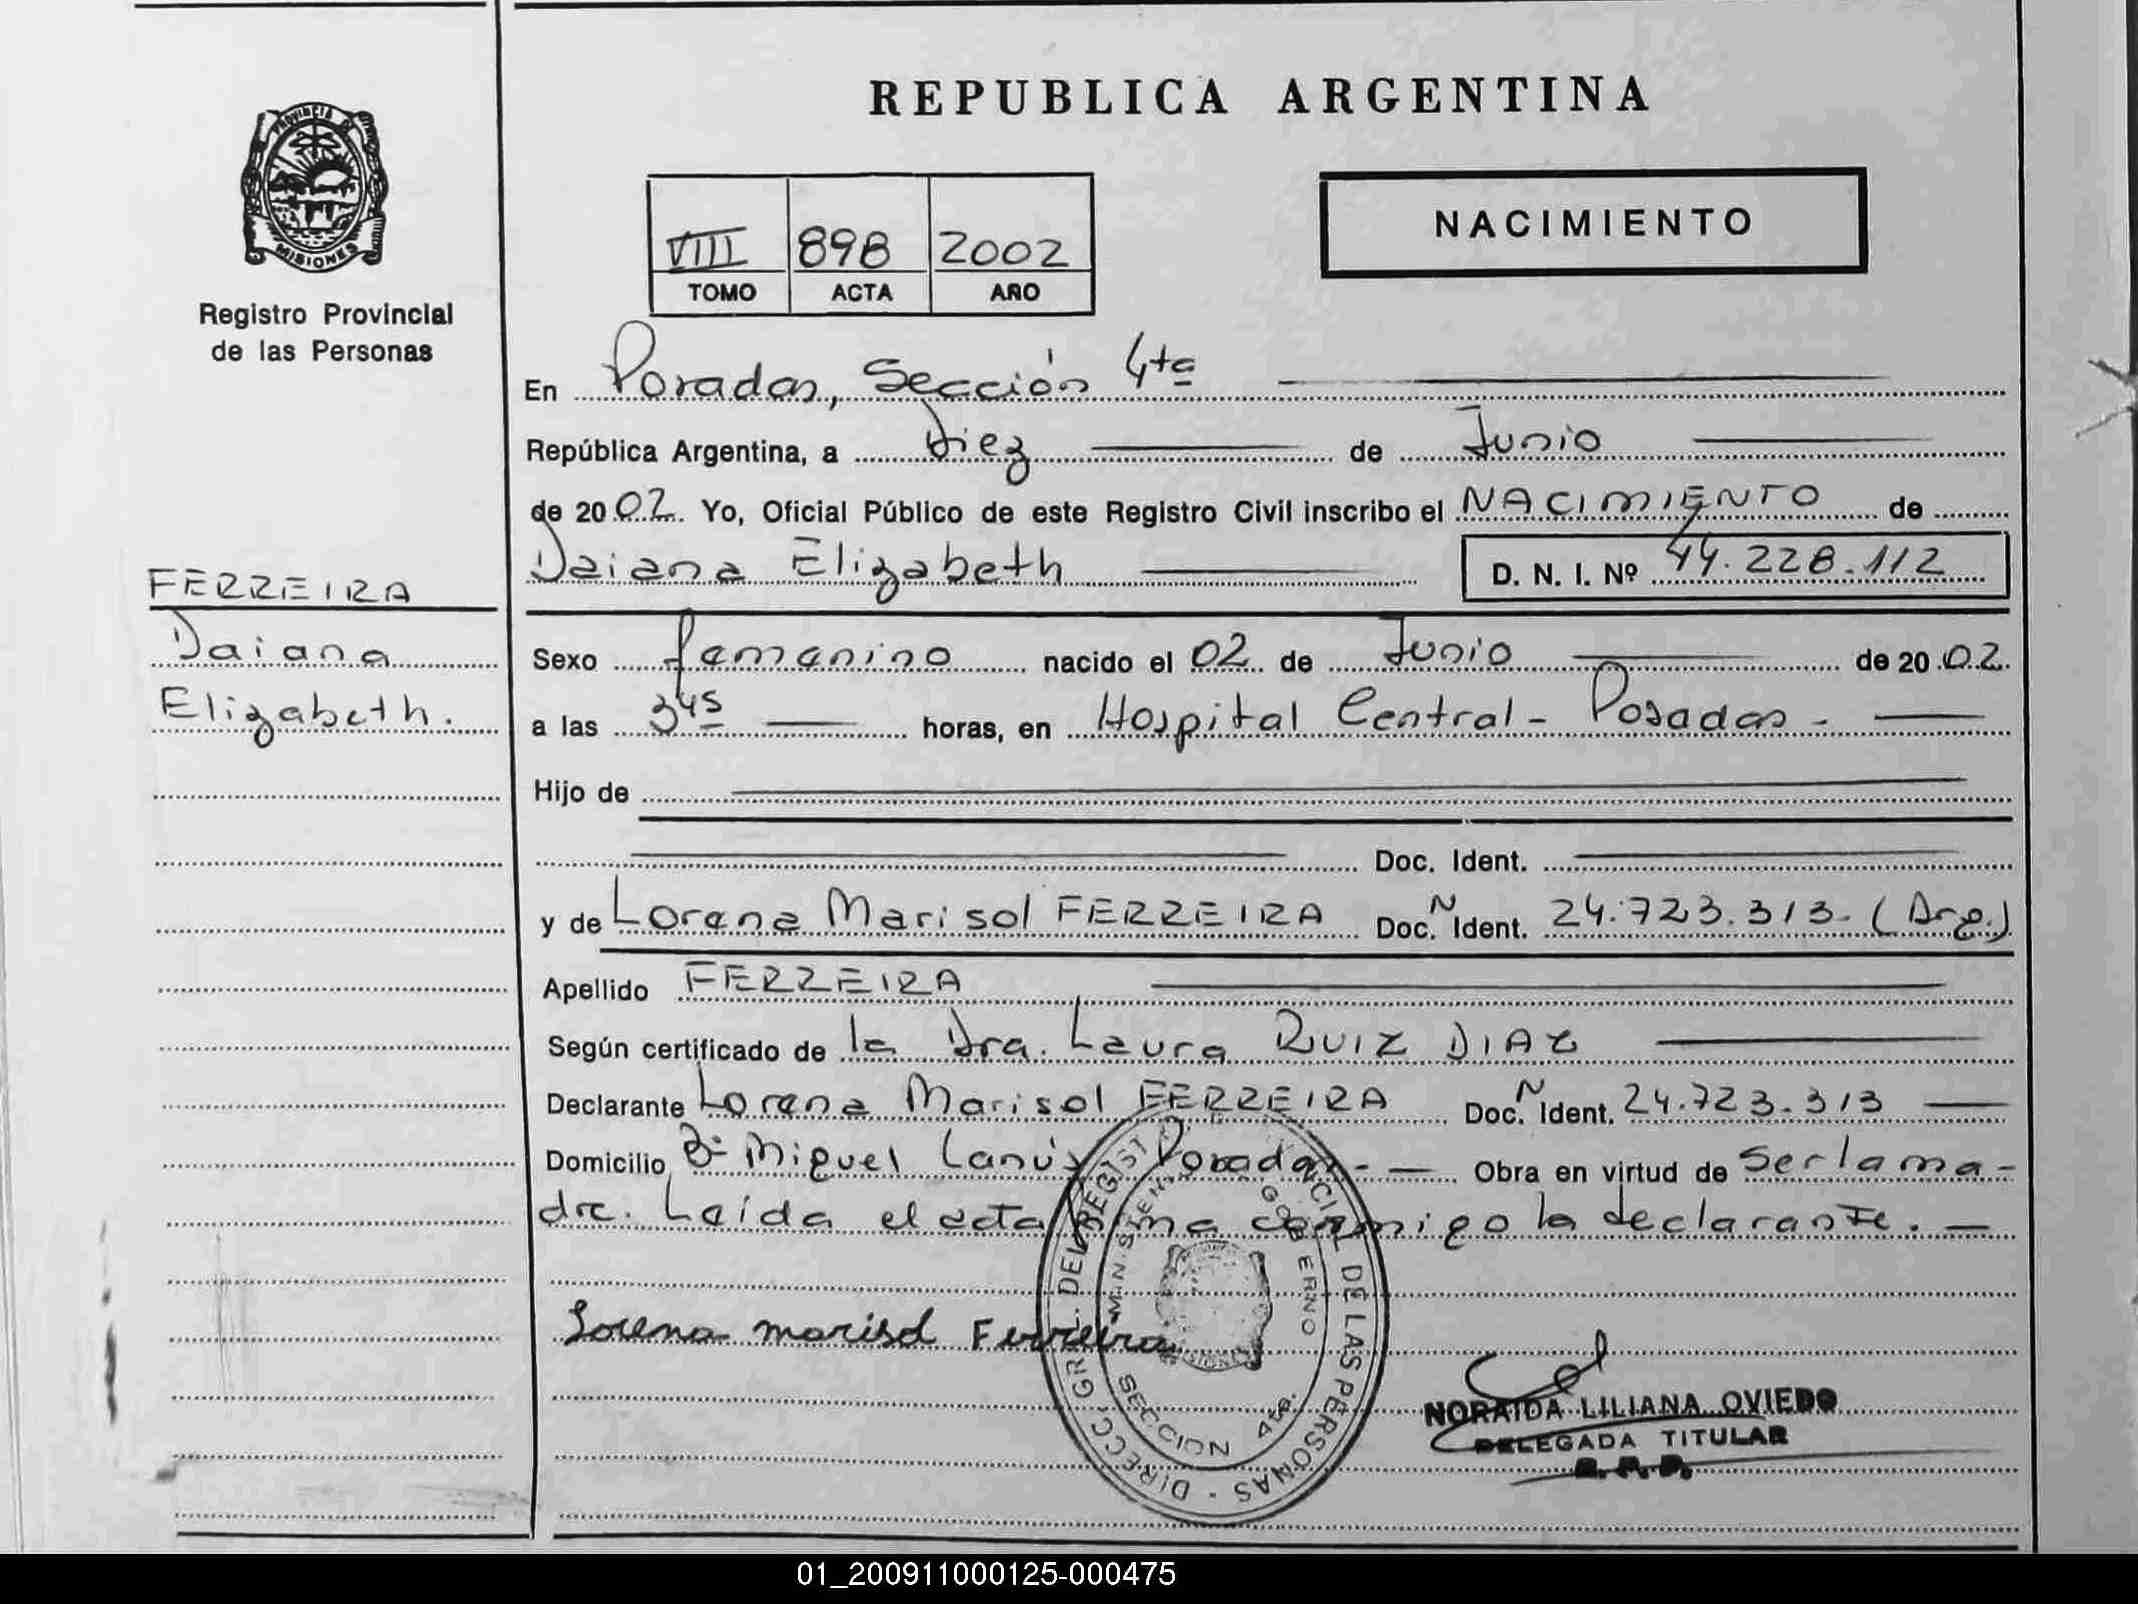 REPUBLICA ARGENTINA
PROVINCIA DE
MISIONES
Registro Provincial
de las Personas
VIII 898 2002
TOMO ACTA AÑO
NACIMIENTO
En Posadas, Sección 4ta
República Argentina, a Diez de Junio
de 2002. Yo, Oficial Público de este Registro Civil inscribo el NACIMIENTO de
Daiana Elizabeth D. N. I. Nº 44.228.112
FERREIRA
Daiana
Elizabeth.
Sexo femenino nacido el 02 de Junio de 2002.
a las 3 45 horas, en Hospital Central - Posadas -
Hijo de
Doc. Ident.
y de Lorena Marisol FERREIRA Doc. N Ident. 24.723.313. (Arg.)
Apellido FERREIRA
Según certificado de la Dra. Laura RUIZ DIAZ
Declarante Lorena Marisol FERREIRA Doc. N Ident. 24.723.313
Domicilio Bº Miguel Lanús Posadas - Obra en virtud de Ser la ma-
dre. Leída el acta firma conmigo la declarante.
Lorena marisol Ferreira
DIRECC. GRL. DEL REGIST PROVINCIAL DE LAS PERSONAS -
MINISTERIO GOBIERNO
SECCION 4ta.
NORAIDA LILIANA OVIEDO
DELEGADA TITULAR
R. P. P.
01_200911000125-000475